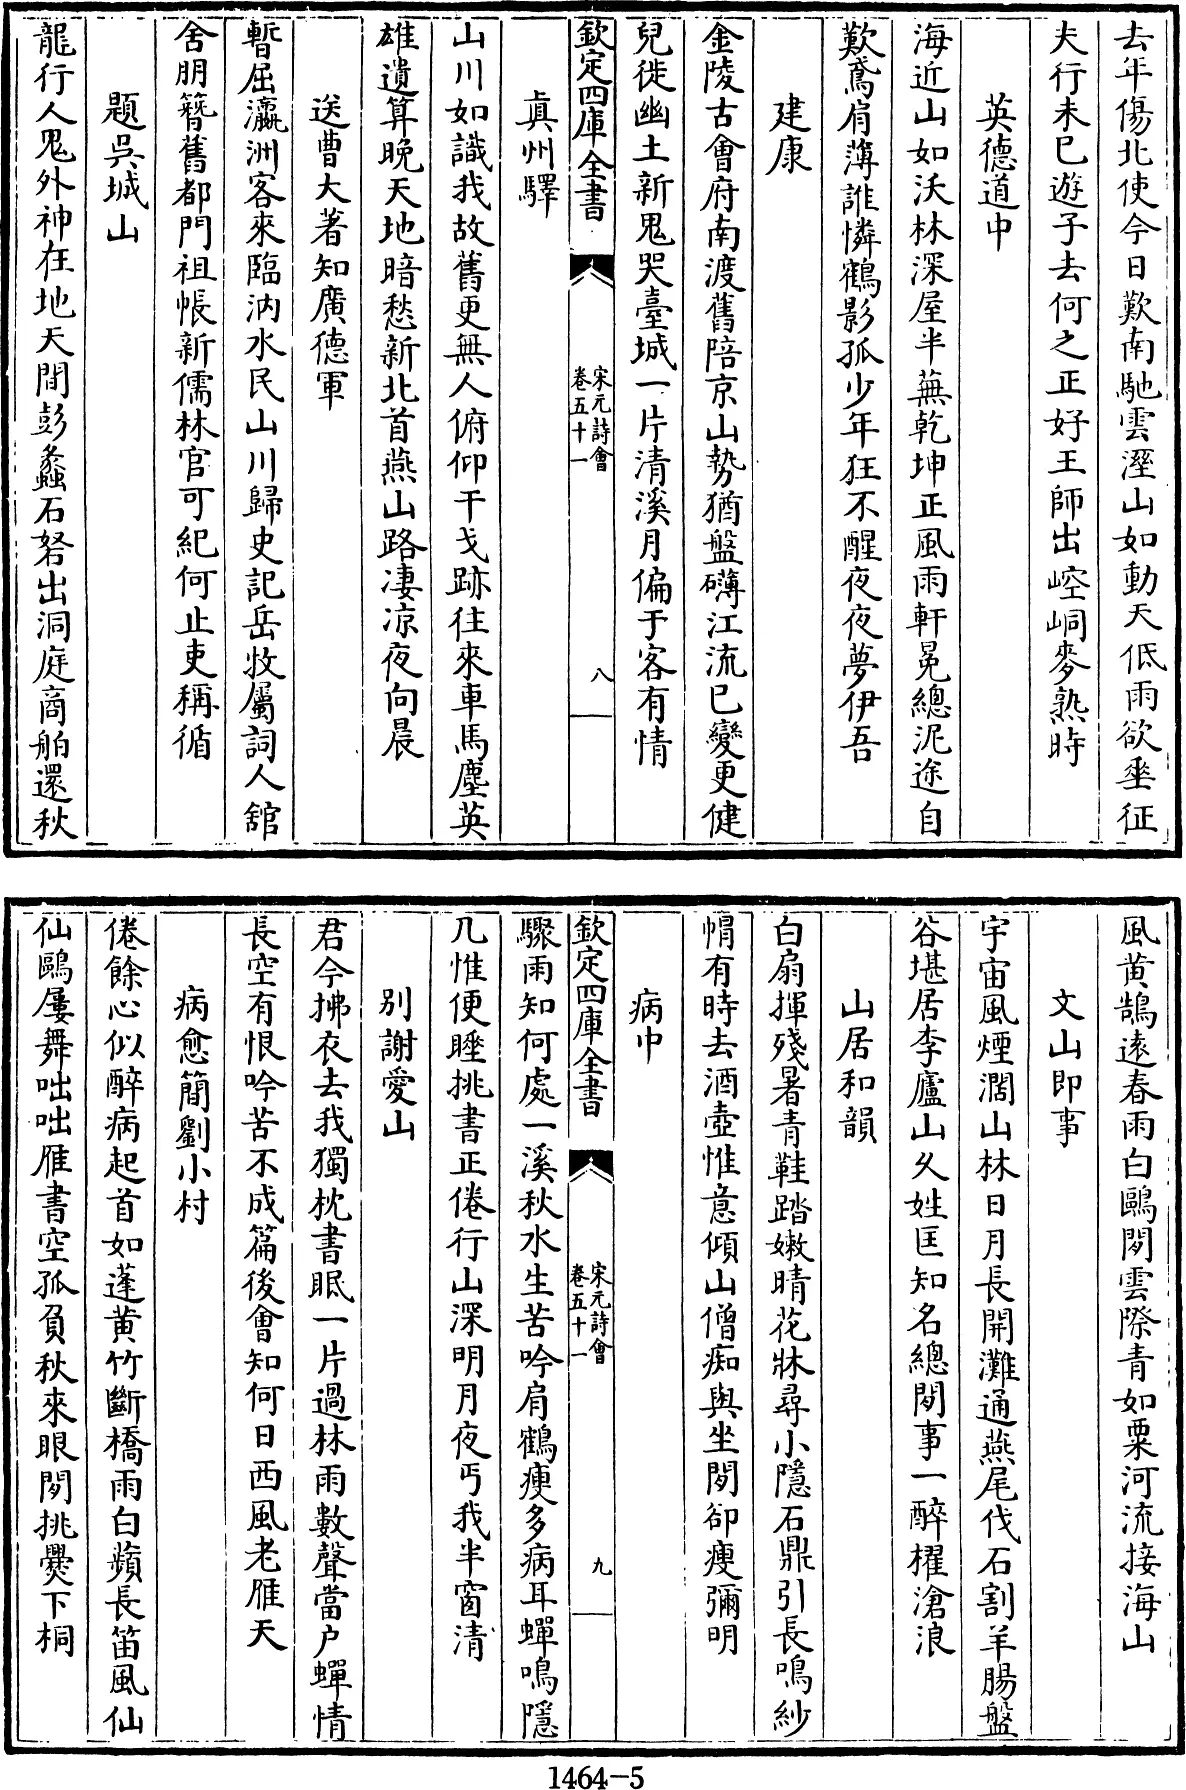 去年傷北使今日歎南馳雲溼山如動天低雨欲垂征
夫行未已遊子去何之正好王師出崆峒麥熟時
英德道中
海近山如沃林深屋半蕪乾坤正風雨軒冕總泥途自
歎鳶肩薄誰憐鶴影孤少年狂不醒夜夜夢伊吾
建康
金陵古會府南渡舊陪京山勢猶盤礴江流已變更健
兒徙幽土新鬼哭臺城一片清溪月偏于客有情
欽定四庫全書
宋元詩會
卷五十一
八
真州驛
山川如識我故舊更無人俯仰干戈跡往來車馬塵英
雄遺算晚天地暗愁新北首燕山路凄凉夜向晨
送曹大著知廣德軍
暫屈瀛洲客來臨汭水民山川歸史記岳牧屬詞人舘
舍朋簪舊都門祖帳新儒林官可紀何止吏稱循
題吳城山
龍行人鬼外神在地天間彭蠡石砮出洞庭商舶還秋
風黄鵠遠春雨白鷗閒雲際青如粟河流接海山
文山即事
宇宙風煙濶山林日月長開灘通燕尾伐石割羊腸盤
谷堪居李廬山乆姓匡知名總閒事一醉櫂滄浪
山居和韻
白扇揮殘暑青鞋踏嫩晴花牀尋小隱石鼎引長鳴紗
帽有時去酒壺惟意傾山僧痴與坐閒卻瘦彌明
病中
欽定四庫全書
宋元詩會
卷五十一
九
驟雨知何處一溪秋水生苦吟肩鶴瘦多病耳蟬鳴隱
几惟便睡挑書正倦行山深明月夜丐我半窗清
别謝愛山
君今拂衣去我獨枕書眠一片過林雨數聲當户蟬情
長空有恨吟苦不成篇後會知何日西風老雁天
病愈簡劉小村
倦餘心似醉病起首如蓬黄竹斷橋雨白蘋長笛風仙
仙鷗屢舞咄咄雁書空孤負秋來眼閒挑爨下桐
1464-5